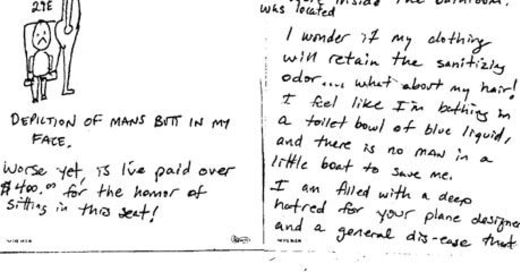 29E
DEPICTION OF MANS BUTT IN MY
FACE.
Worse yet, is I've paid over
$400.00 for the honor of
sitting in this seat!
inside the bathroom.
was located
I wonder if my clothing
will retain the sanitizing
odor.... what about my hair!
I feel like I'm bathing in
a toilet bowl of blue liquid,
and there is no man in a
little boat to save me.
I am filled with a deep
hatred for your plane designer
and a general dis-ease that